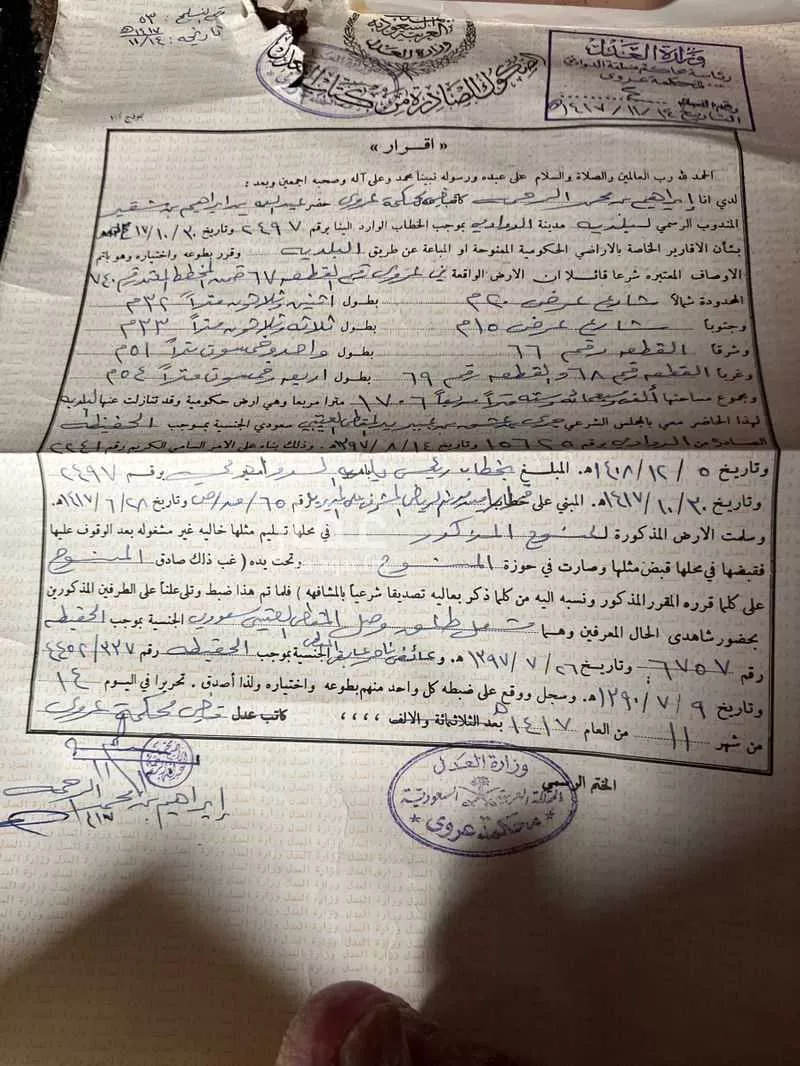 رقم التسلسل: ٥٣
تاريخه: ١٤١٧/١١/١٤هـ
العربية السعودية
وزارة العدل
صكوك الصادرة من كتاب العدل
وزارة العدل
رئاسة محاكم منطقة
محكمة عروى
التاريخ ١٤١٧/١١/١٤هـ
« اقرار »
الحمد لله رب العالمين والصلاة والسلام على عبده ورسوله نبينا محمد وعلى آله وصحبه اجمعين وبعد :
لدي انا إبراهيم بن محمد الرحمه كاتب عدل محكمة عروى حضر عبدالله بن ابراهيم بن شقير
المندوب الرسمي لبلدية مدينة الدوادمي بموجب الخطاب الوارد الينا برقم ٢٤٩٧ وتاريخ ١٧/١٠/٣٠
بشأن الأقارير الخاصة بالاراضي الحكومية الممنوحة او المباعة عن طريق البلدية وقرر بطوعه واختياره وهو باتم
الاوصاف المعتبره شرعا قائلا ان الارض الواقعة في عروى رقم القطعه ٦٧ ضمن المخطط المعتمد رقم ٧٤٠
المحدودة شمالاً شارع عرض ٢٠م بطول اثنين وثلاثون متراً ٣٢م
وجنوباً شارع عرض ١٥م بطول ثلاثه وثلاثون متراً ٣٣م
وشرقا القطعه رقم ٦٦ بطول واحد وخمسون متراً ٥١م
وغربا القطعه رقم ٦٨ والقطعه رقم ٦٩ بطول اربعه وخمسون متراً ٥٤م
ومجموع مساحتها ألف وسبعمائه وسته متراً مربعاً ١٧٠٦ مترا مربعا وهي ارض حكومية وقد تنازلت عنها البلدية
لهذا الحاضر معي بالمجلس الشرعي العتيبي سعودي الجنسية بموجب الحفيظه
الصادره من الدوادمي برقم ١٥٦٢٥ وتاريخ ١٣٩٧/٨/١٤هـ. وذلك بناء على الامر السامي الكريم رقم ٢٢٤١
وتاريخ ١٤٠٨/١٢/٥هـ. المبلغ بخطاب رئيس بلدية الدوادمي برقم ٢٤٩٧
وتاريخ ١٤١٧/١٠/٣٠هـ. المبني على خطاب برقم ٦٥/ص وتاريخ ١٤١٧/٦/٢٨هـ.
وسلمت الارض المذكورة للممنوح المذكور في محلها تسليم مثلها خاليه غير مشغوله بعد الوقوف عليها
فقبضها في محلها قبض مثلها وصارت في حوزة الممنوح وتحت يده ( غب ذلك صادق الممنوح
على كلما قرره المقرر المذكور ونسبه اليه من كلما ذكر بعاليه تصديقا شرعياً بالمشافهه ) فلما تم هذا ضبط وتلي علناً على الطرفين المذكورين
بحضور شاهدي الحال المعرفين وهما العتيبي سعودي الجنسية بموجب الحفيظه
رقم ٦٧٥٧ وتاريخ ١٣٩٧/٧/٢٦هـ. و الجنسية بموجب الحفيظه رقم ٤٤٥٢/٣٣٧
وتاريخ ١٣٩٠/٧/٩هـ. وسجل ووقع على ضبطه كل واحد منهم بطوعه واختياره ولذا أصدق . تحريرا في اليوم ١٤
من شهر ١١ من العام ١٤١٧هـ بعد الثلاثمائة والالف ،،،، كاتب عدل قاضي محكمة عروى
الختم الرسمي
وزارة العدل
المملكة العربية السعودية
محكمة عروى
إبراهيم بن محمد الرحمه